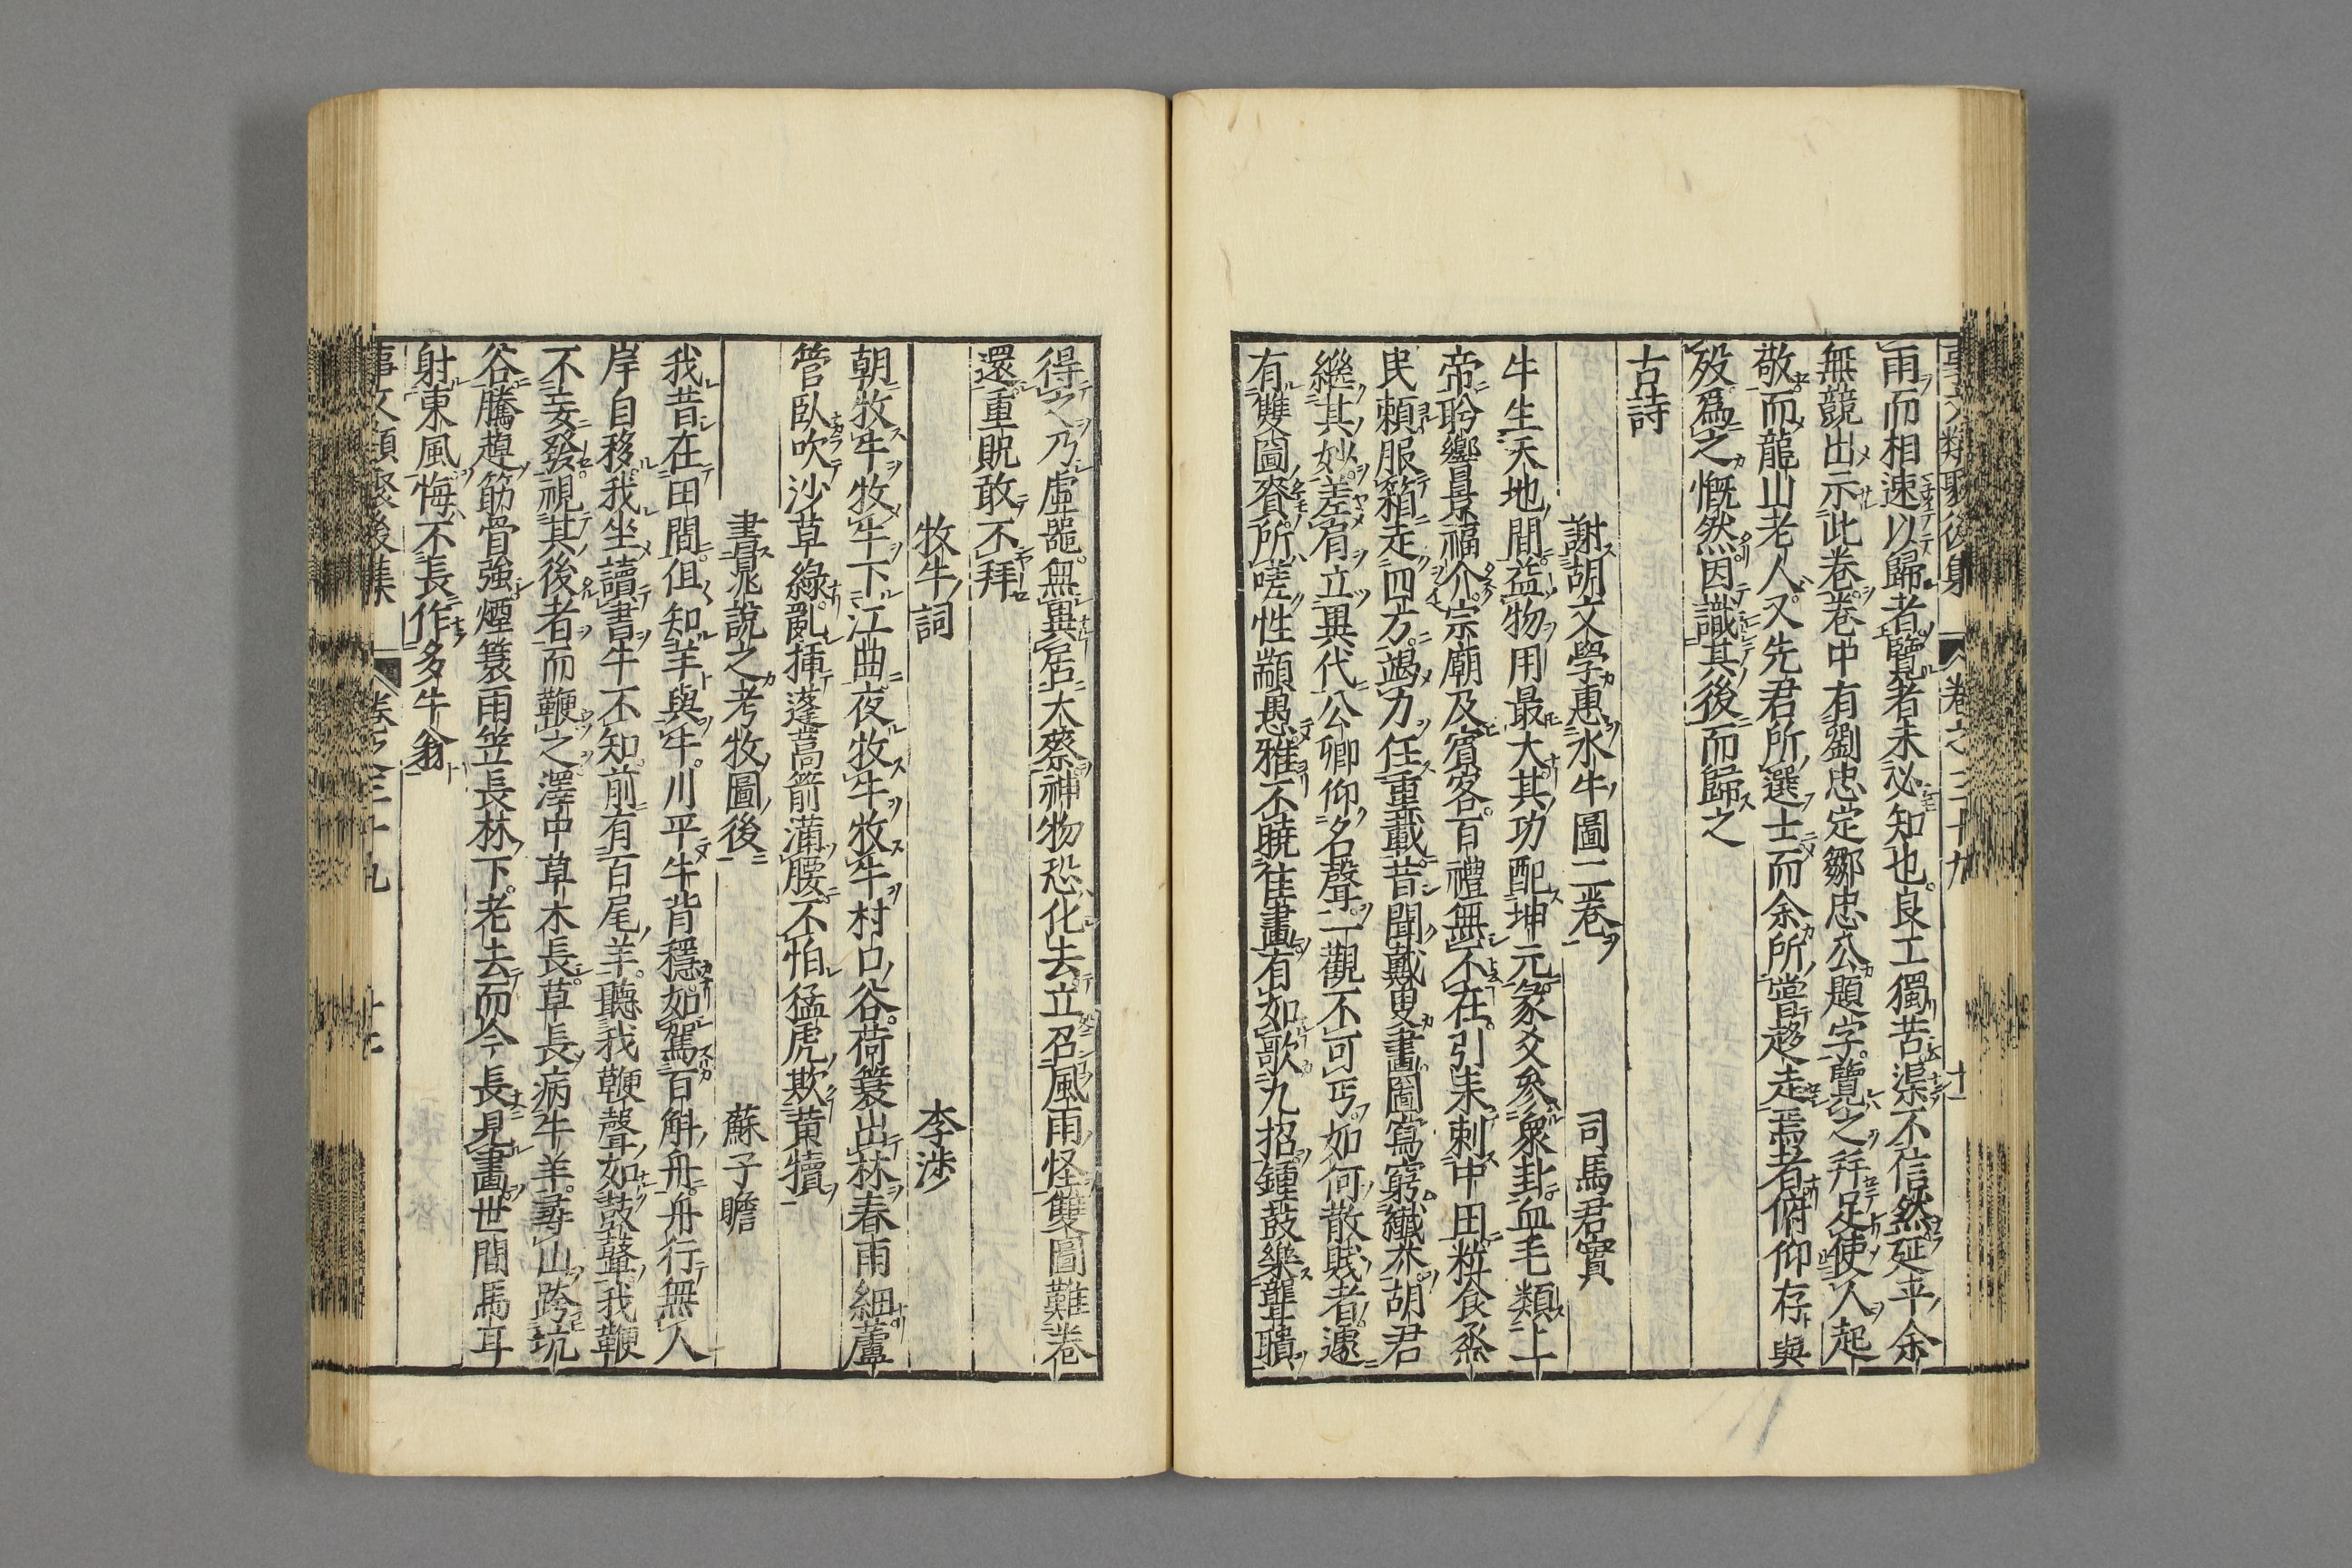 事文類聚後集 卷之三十九 十一
雨而相速以歸者覽者未必知也良工獨苦渠不信然延平余
無競出示此卷卷中有劉忠定鄒忠公題字覽之幷足使人起
敬而龍山老人又先君所選士而余所嘗趍走焉者俯仰存與
歿爲之慨然因識其後而歸之
古詩
謝胡文學惠水牛圖二卷 司馬君實
牛生天地間益物用最大其功配坤元彖爻參衆卦血毛類上
帝肸嚮景福介宗廟及賓客百禮無不在引耒刺中田粒食烝
民賴服箱走四方竭力任重載昔聞戴叟畫圖寫窮纖芥胡君
繼其妙差肩立異代公卿仰名聲一觀不可丐如何散賤者遽
有雙圖賚所嗟性顓愚雅不曉徃畫有如歌九招鍾鼓樂聾聵
得之乃虛器無異居大蔡神物恐化去立召風雨怪雙圖難卷
還重貺敢不拜
牧牛詞 李涉
朝牧牛牧牛下江曲夜牧牛牧牛村口谷荷簑出林春雨細蘆
管臥吹沙草綠亂揷蓬蒿箭滿腰不怕猛虎欺黃犢
書晁說之考牧圖後 蘇子瞻
我昔在田間但知羊與牛川平牛背穩如駕百斛舟舟行無人
岸自移我坐讀書牛不知前有百尾羊聽我鞭聲如鼓鼙我鞭
不妄發視其後者而鞭之澤中草木長草長病牛羊尋山跨坑
谷騰趠筋骨強煙簑雨笠長林下老去而今長見畫世間馬耳
射東風悔不長作多牛翁
事文類聚後集 卷之三十九